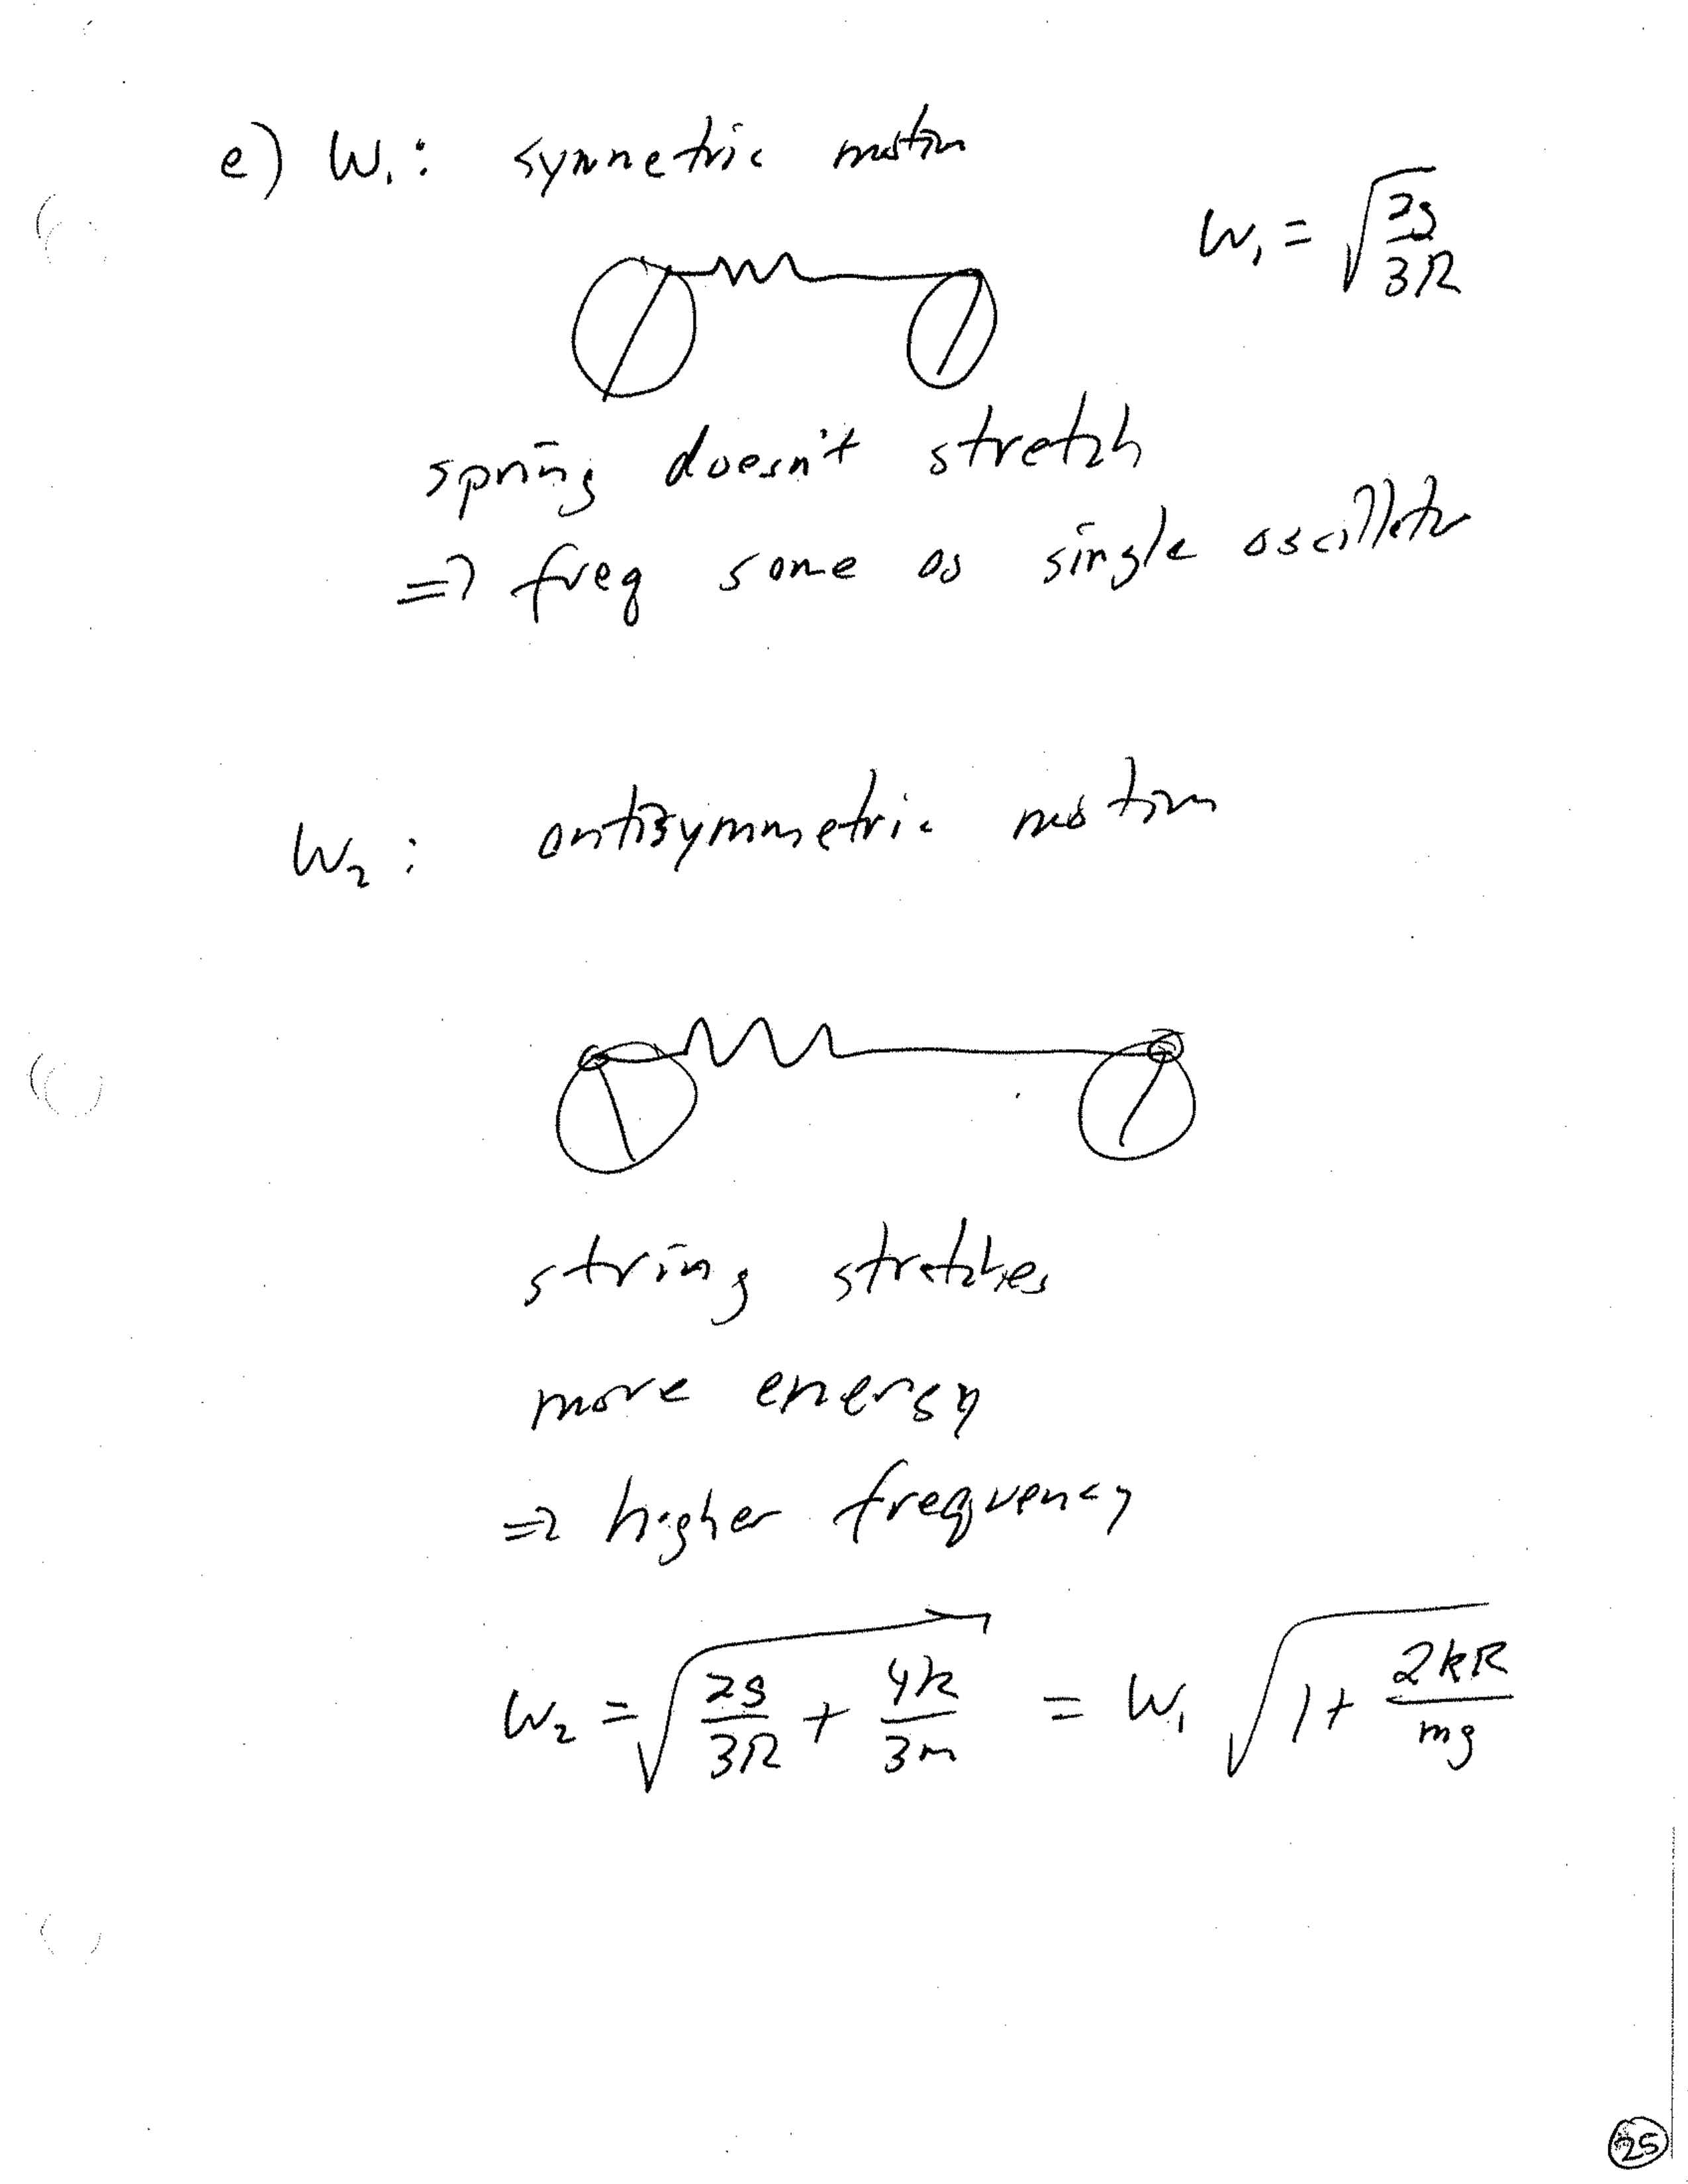 e) W₁: symnetric motion
W₁ = √(2g/3R)
spring doesn't stretch
=> freq same as single oscillator
W₂: antisymmetric motion
string stretches
more energy
=> higher frequency
W₂ = √(2g/3R + 4k/3m) = W₁ √(1 + 2kR/mg)
25